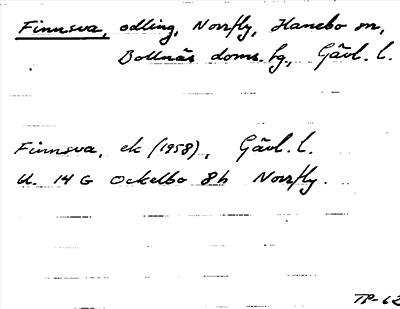 Finnsva, odling, Norrfly, Hanebo sn,
Bollnäs doms. fg, Gävl. l.
Finnsva, ek (1958), Gävl. l.
bl. 14 G Ockelbo 8h Norrfly.
TP-62